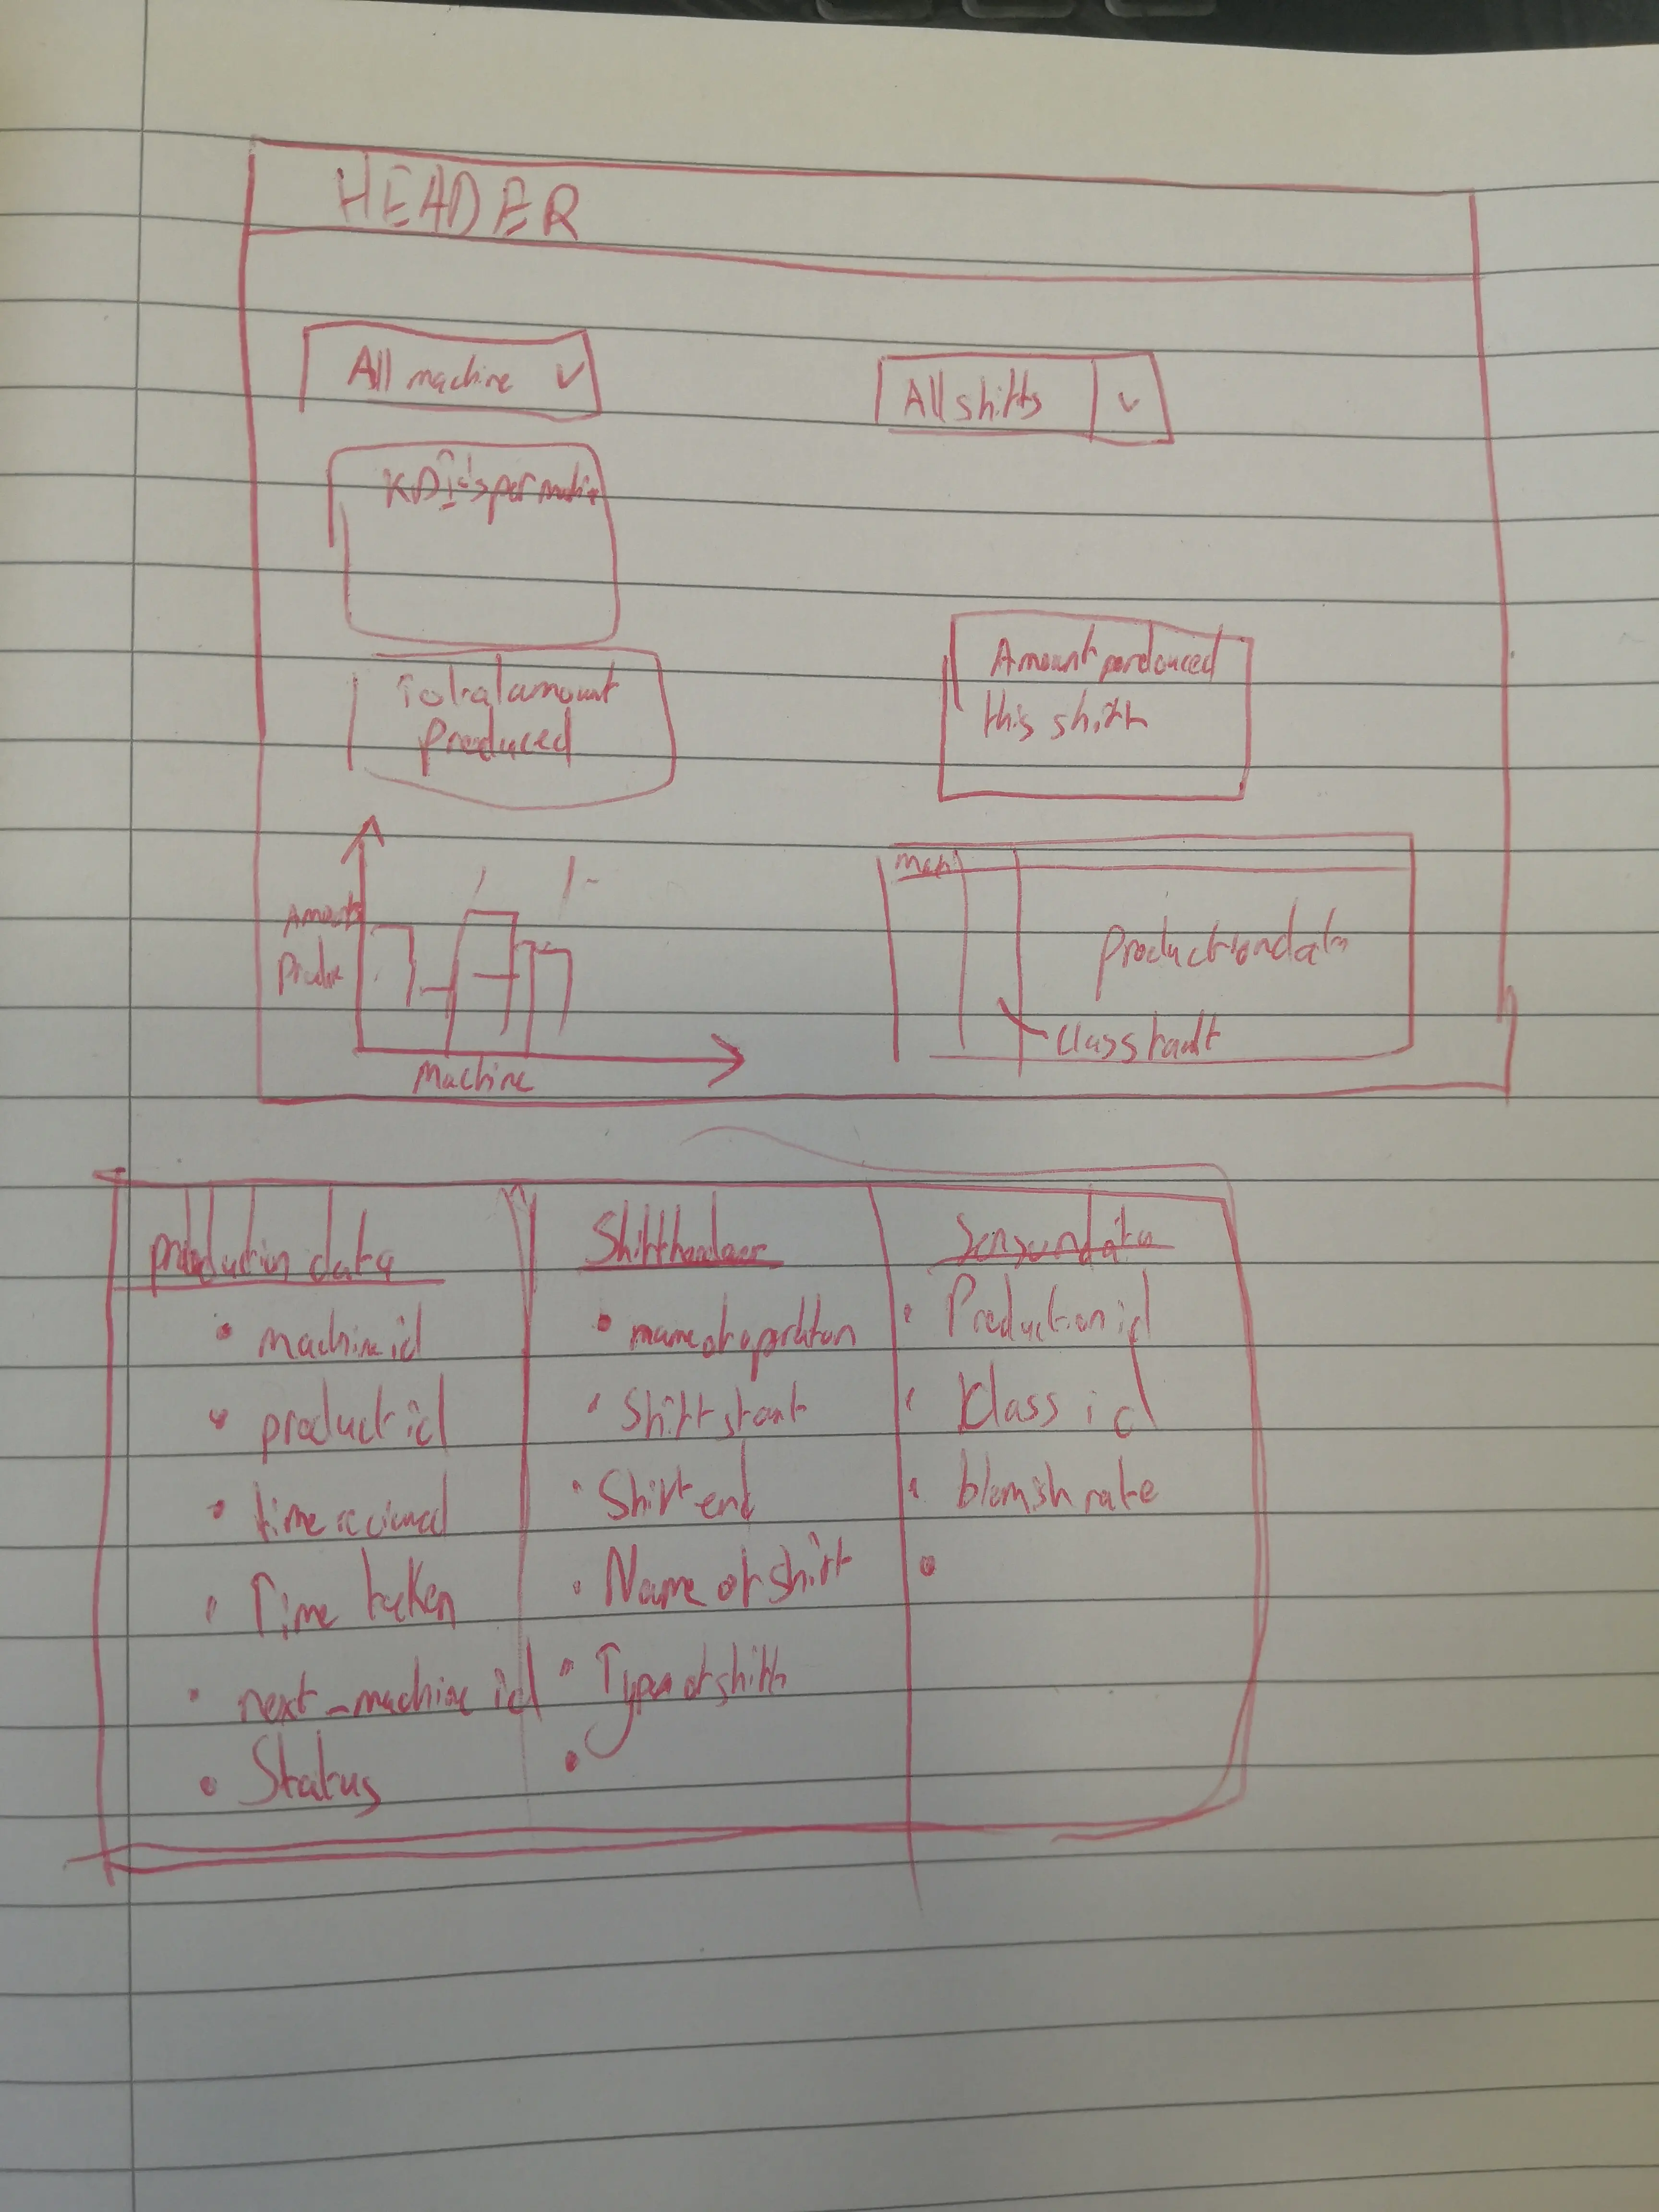 HEADER
All machine
All shifts
KPI's per
Total amount
produced
Amount pordouced
this shift
Amount
Machine
Mach
production data
Class fault
production data
machine id
product id
time
Time taken
next_machine id
Status
Shift
name of
Shift start
Shift end
Name of shift
Type of shift
Sensordata
Production id
Klass id
blemish rate